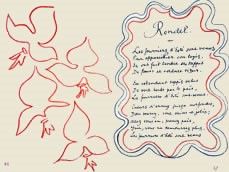 Rondel
Les fourriers d'été sont venus
Pour appareiller son logis,
Et ont fait tendre ses tapis
De fleurs et verdure
En estendant tapis velus
De vert herbe par le pais,
Les fourriers d'été sont venus
Cueurs d'ennuy pieça morfondus,
Dieu mercy, sont sains et jolis;
Alez vous en, prenez pais,
Yver, vous ne demourrez plus;
Les fourriers d'été sont venus